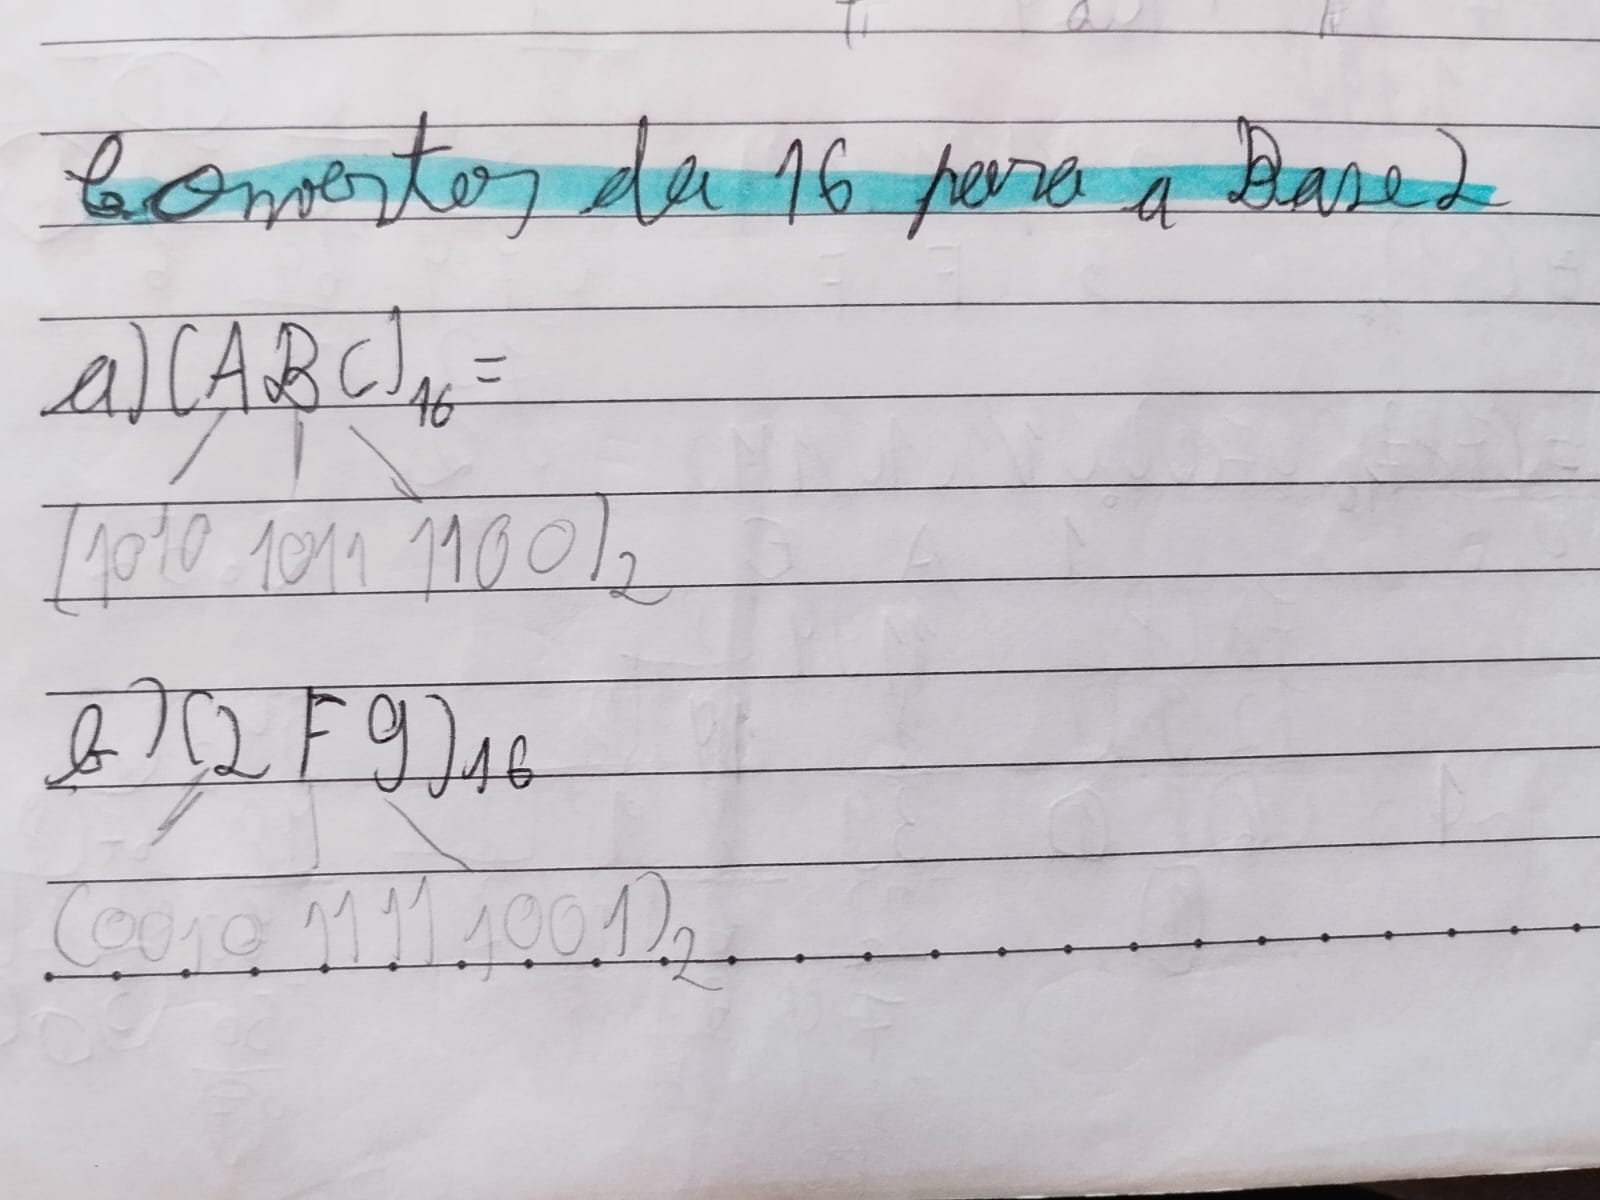 Converter da 16 para a Base 2
a) (ABC)16 =
(1010 1011 1100)2
b) (2 F 9)16
(0010 1111 1001)2